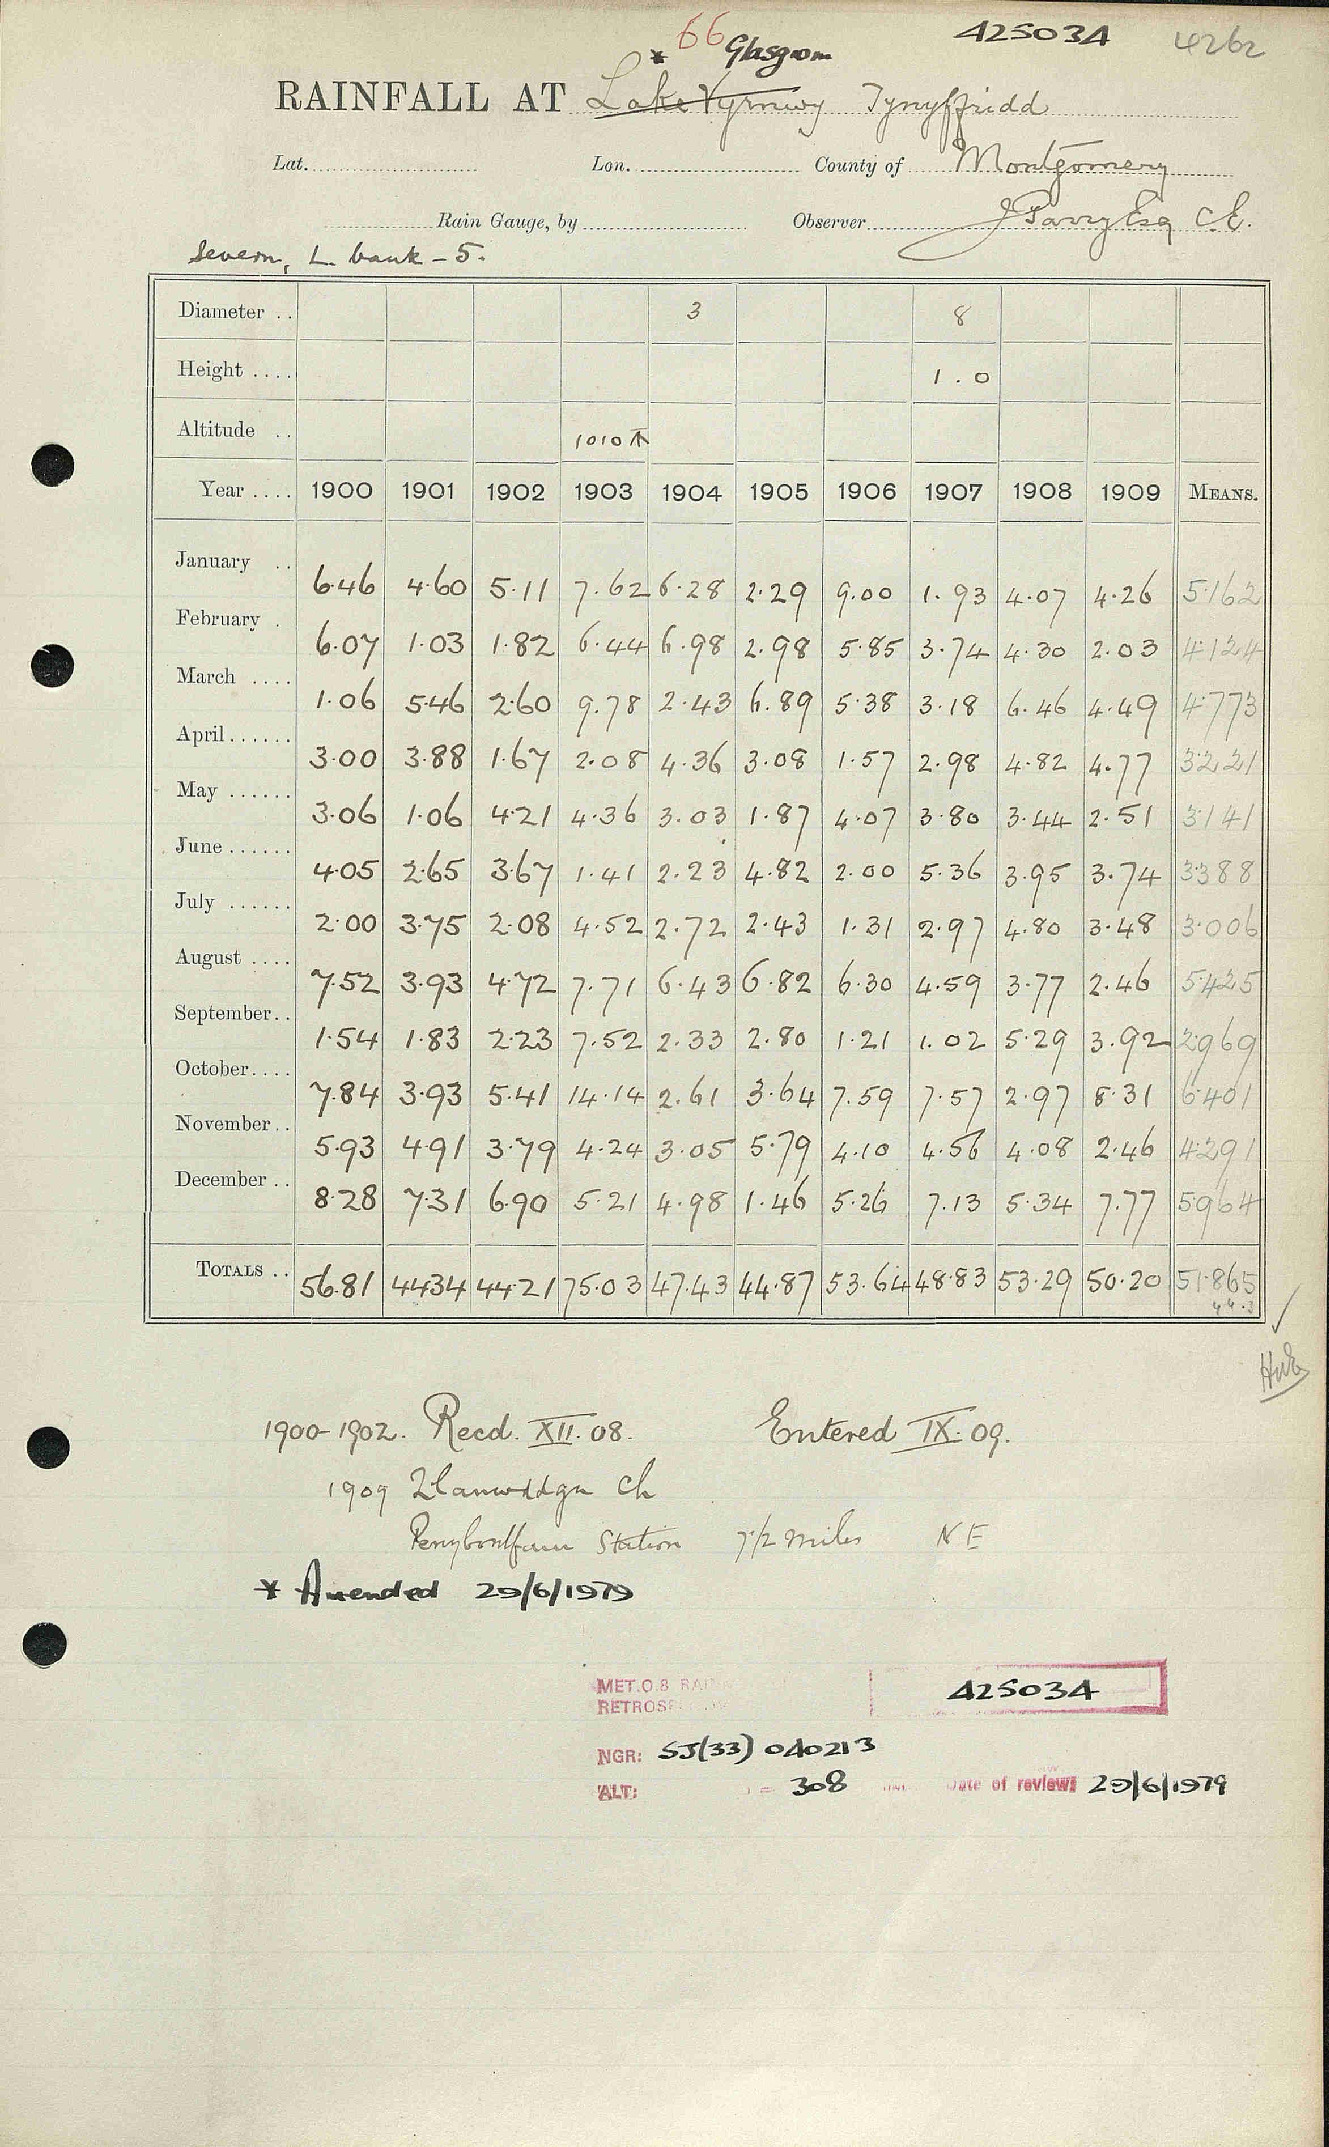 66 425034 4262
* Glasgwm
RAINFALL AT Lake Vyrnwy Tynyffridd
Lat. Lon. County of Montgomery
Rain Gauge, by Observer J Parry Esq C.E.
Severn, L. bank - 5.
Diameter .. 3 8
Height .... 1.0
Altitude .. 1010
Year .... 1900 1901 1902 1903 1904 1905 1906 1907 1908 1909 MEANS.
January .. 6.46 4.60 5.11 7.62 6.28 2.29 9.00 1.93 4.07 4.26 5.162
February . 6.07 1.03 1.82 6.44 6.98 2.98 5.85 3.74 4.30 2.03 4.124
March .... 1.06 5.46 2.60 9.78 2.43 6.89 5.38 3.18 6.46 4.49 4.773
April...... 3.00 3.88 1.67 2.08 4.36 3.08 1.57 2.98 4.82 4.77 3.221
May ...... 3.06 1.06 4.21 4.36 3.03 1.87 4.07 3.80 3.44 2.51 3.141
June...... 4.05 2.65 3.67 1.41 2.23 4.82 2.00 5.36 3.95 3.74 3.388
July ...... 2.00 3.75 2.08 4.52 2.72 2.43 1.31 2.97 4.80 3.48 3.006
August .... 7.52 3.93 4.72 7.71 6.43 6.82 6.30 4.59 3.77 2.46 5.425
September.. 1.54 1.83 2.23 7.52 2.33 2.80 1.21 1.02 5.29 3.92 2.969
October.... 7.84 3.93 5.41 14.14 2.61 3.64 7.59 7.57 2.97 8.31 6.401
November.. 5.93 4.91 3.79 4.24 3.05 5.79 4.10 4.56 4.08 2.46 4.291
December .. 8.28 7.31 6.90 5.21 4.98 1.46 5.26 7.13 5.34 7.77 5.964
TOTALS .. 56.81 44.34 44.21 75.03 47.43 44.87 53.64 48.83 53.29 50.20 51.865
1900-1902. Recd. XII. 08. Entered IX. 09.
1909 Llanwddyn Ch
Penybontfawr Station 7 1/2 miles NE
* Amended 29/6/1979
MET.O.8 425034
NGR: SJ(33) 040213
ALT: = 308 Date of review: 29/6/1979